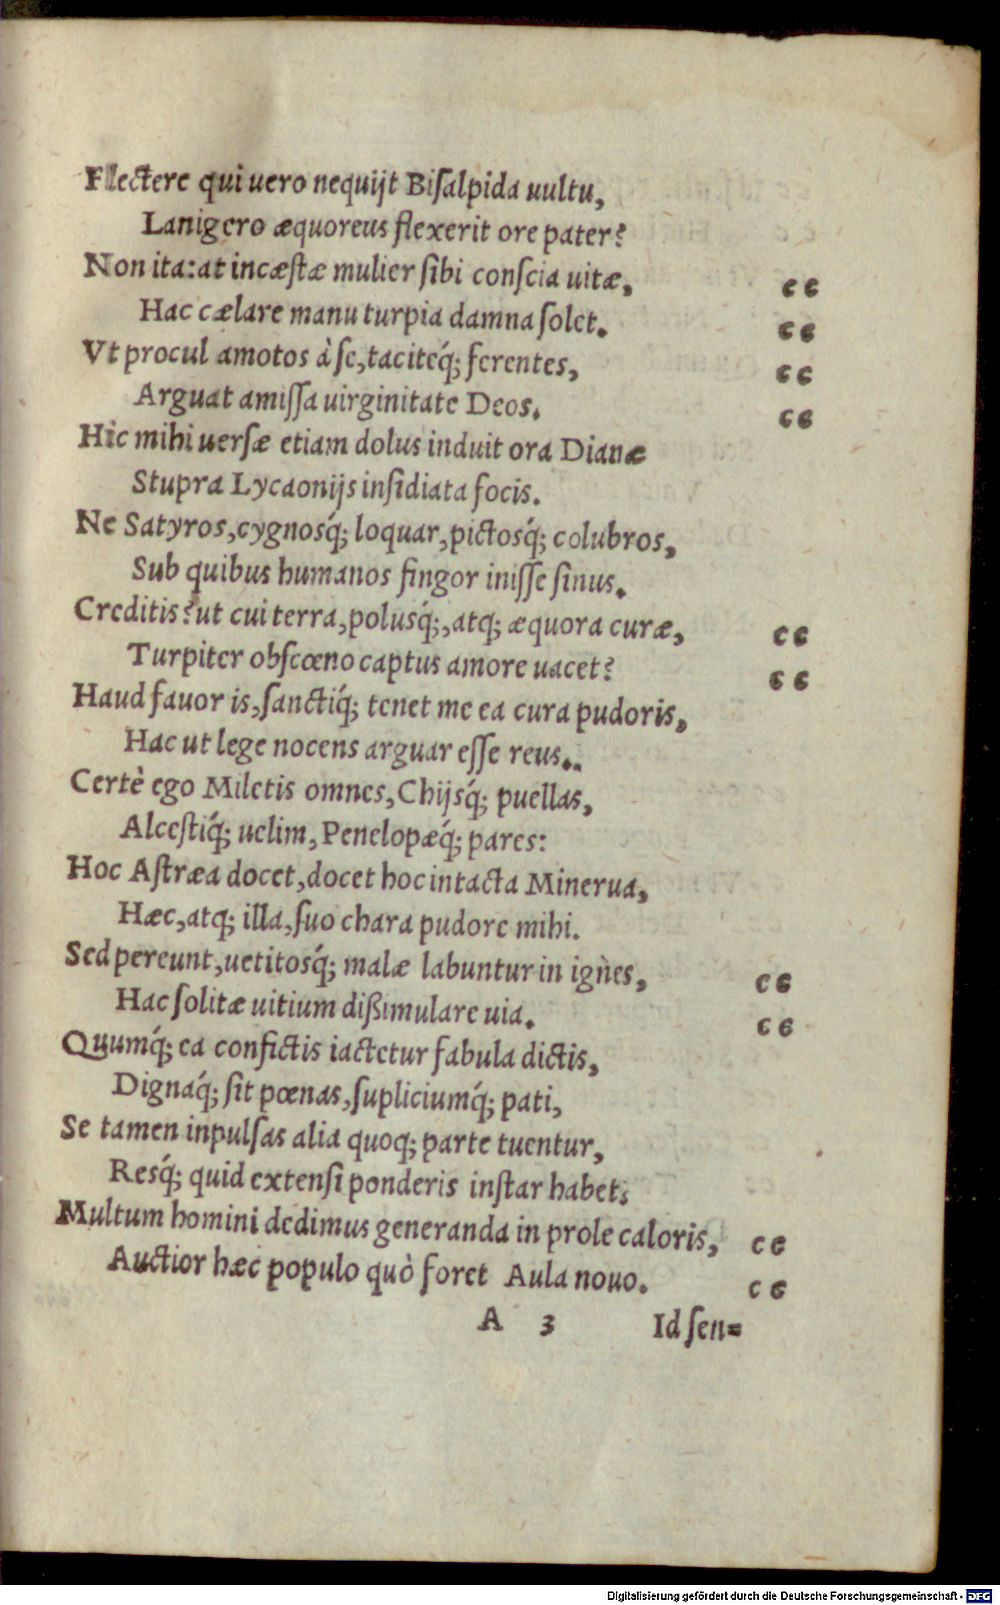 Flectere qui uero nequijt Bisalpida uultu,
Lanigero æquoreus flexerit ore pater?
Non ita: at incæstæ mulier sibi conscia uitæ, cc
Hac cælare manu turpia damna solet. cc
Vt procul amotos à se, taciteq́; ferentes, cc
Arguat amissa uirginitate Deos. cc
Hic mihi uersæ etiam dolus induit ora Dianæ
Stupra Lycaonijs insidiata focis.
Ne Satyros, cygnosq́; loquar, pictosq́; colubros,
Sub quibus humanos fingor inisse sinus.
Creditis? ut cui terra, polusq́;, atq; æquora curæ, cc
Turpiter obscœno captus amore uacet? cc
Haud fauor is, sanctiq́; tenet me ea cura pudoris,
Hac ut lege nocens arguar esse reus..
Certè ego Miletis omnes, Chijsq́; puellas,
Alcestiq́; uelim, Penelopæq́; pares:
Hoc Astræa docet, docet hoc intacta Minerua,
Hæc, atq; illa, suo chara pudore mihi.
Sed pereunt, uetitosq́; malæ labuntur in ignes, cc
Hac solitæ uitium dißimulare uia. cc
Quumq́; ea confictis iactetur fabula dictis,
Dignaq́; sit pœnas, supliciumq́; pati,
Se tamen inpulsas alia quoq; parte tuentur,
Resq́; quid extensi ponderis instar habet;
Multum homini dedimus generanda in prole caloris, cc
Auctior hæc populo quò foret Aula nouo. cc
A 3 Id sen=
Digitalisierung gefördert durch die Deutsche Forschungsgemeinschaft - DFG